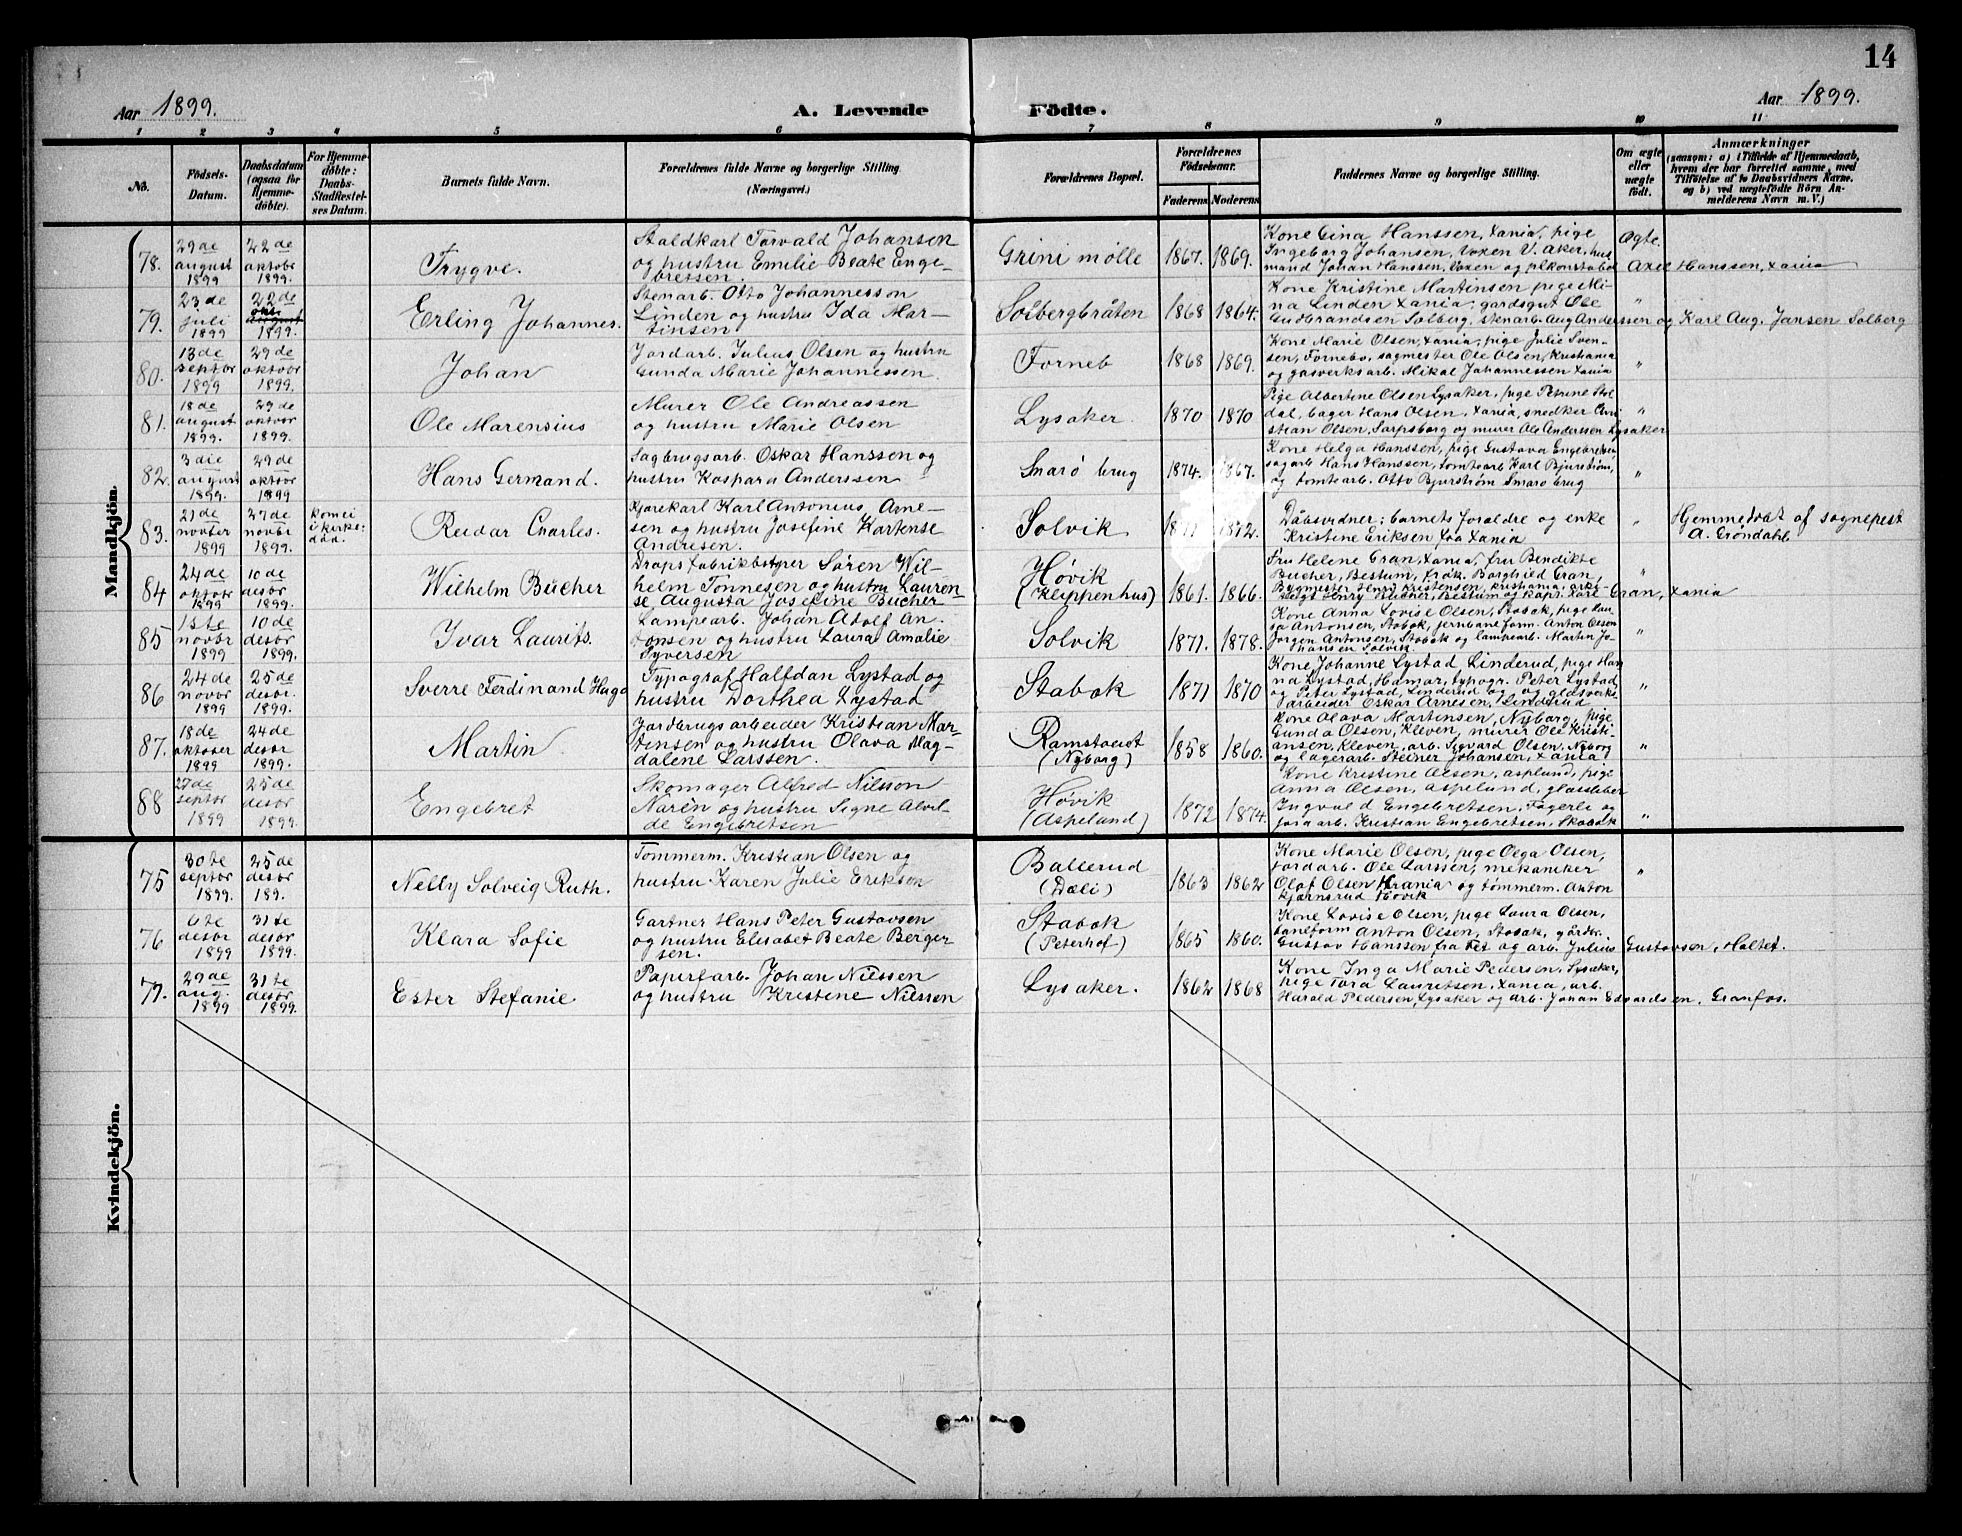 14
Aar 1899.
A. Levende Födte.
Aar 1899.
1 2 3 4 5 6 7 8 9 10 11
No.
Födsels-
Datum.
Daabsdatum
(ogsaa for
Hjemme-
døbte).
For Hjemme-
døbte:
Daabs-
Stadfæstel-
ses Datum.
Barnets fulde Navn.
Forældrenes fulde Navne og borgerlige Stilling.
(Næringsvei.)
Forældrenes Bopæl.
Forældrenes
Födselsaar.
Faderens Moderens
Faddernes Navne og borgerlige Stilling.
Om ægte
eller
uægte
født.
Anmærkninger
(saasom: a) i Tilfælde af Hjemmedaab,
hvem der har forrettet samme, med
Tilføielse af to Daabsvidners Navne.
og b) ved uægtefødte Börn An-
melderens Navn m. V.)
Mandkjön.
78.
29de
august
1899
22de
oktobr
1899.
Trygve.
Staldkarl Torvald Johansen
og hustru Emilie Beate Enge-
bretsen
Grini mølle
1867. 1869.
Kone Gina Hanssen, Xania, pige
Ingeborg Johansen, Voxen V. Aker, hus
mand Johan Hanssen, Voxen og plkonstabel Axel Hanssen, Xania
Ægte.
79.
23de
juli
1899
22de
oktbr
august
1899.
Erling Johannes.
Stenarb. Otto Johannesson
Linden og hustru Ida Mar-
tinsen
Solbergbråten
1868 1864.
Kone Kristine Martinsen pige Mi-
na Linden Xania; gardsgut Ole
Gudbrandsen Solberg, stenarb. Aug Anderssen og Karl Aug. Jansen Solberg
"
80.
13de
septbr
1899
29de
oktobr
1899.
Johan
Jordarb. Julius Olsen og hustru
Gunda Marie Johannessen.
Forneb
1868 1869.
Kone Marie Olsen, Xania; pige Julie Sven-
sen, Fornebo, sagmester Ole Olsen, Kristiania
og gasverksarb. Mikal Johannessen Xania
"
81.
18de
august
1899.
29de
oktovr
1899.
Ole Marensius
Murer Ole Andreassen
og hustru Marie Olsen
Lysaker.
1870 1870
Pige Albertine Olsen Lysaker, pige Petrine Stol-
dal, bager Hans Olsen, Xania, snedker Cri-
stian Olsen, Sarpsborg og murer Ole Anderssen Lysaker
"
82.
3die
august
1899.
29de
oktovr
1899
Hans Germand.
Sagbrugsarb. Oskar Hanssen og
hustru Kaspara Anderssen
Snarø brug
1874. 1867.
Kone Helga Hanssen, pige Gustava Engebretsen
sagarb Hans Hanssen, tomtearb Karl Bjurstrøm,
og tomtearb. Otto Bjurstrøm Snarø brug
"
83.
21de
novber
1899
27de
novbr
1899.
kom ei
i kirke:
død.
Reidar Charles.
Kjørekarl Karl Antonius Arne-
sen og hustru Josefine Kartense
Andresen.
Solvik
1871 1872.
Dåbsvidner: barnets foraldre og enke
Kristine Eriksen fra Xania
"
Hjemmedøbt af sognepest
A. Grøndahl.
84
24de
oktobr
1899
10de
desbr
1899.
Wilhelm Bucher
Dropsfabrikbstyrer Søren Wil-
helm Tønnesen og hustru Lauren-
se Augusta Josefine Bucher
Høvik
(Klippenhus)
1861. 1866.
Fru Helene Gran, Xania, fru Bendikte
Bucher, Bestum, frøk. Borghild Gran,
Bygmester Henry Kristensen, Kristiania, arki-
tekt Henry Bucher, Bestum og kapt. Karl Gran, Xania
"
85
1ste
novbr
1899
10de
desbr
1899.
Ivar Laurits.
Lampearb. Johan Adolf An-
tonsen og hustru Laura Amalie
Syversen
Solvik
1871. 1878.
Kone Anna Lovise Olsen, Stabæk, pige Lau-
ra Antonsen, Stabæk, jernbaneform. Anton Olsen
Jørgen Antonsen, Stabæk og lampearb. Martin Jo-
hansen Solvik.
"
86
24de
novbr
1899
25de
desbr.
1899.
Sverre Ferdinand Hugo
Typograf Halfdan Lystad og
hustru Dorthea Lystad
Stabæk
1871 1870
Kone Johanne Lystad Linderud, pige Han
na Lystad, Hamar, typogr. Peter Lystad
og Peter Lystad, Linderud og og glasverks-
arbeider Oskar Arnesen, Linderud
"
87.
18de
oktober
1899
24de
desbr
1899.
Martin
Jordbrugsarbeider Kristian Mar-
tinsen og hustru Olava Mag-
dalene Larssen.
Ramstædt
(Nyborg)
1858 1860.
Kone Olava Martinsen, Nyborg, pige
Gunda Olsen, Kleven, murer Ole Kristi-
ansen, Kleven, arb. Sigvard Olsen, Nyborg
og lagerarb. Steiner Johansen, Xania
"
88
27de
septbr
1899
25de
desbr
1899.
Engebret
Skomager Alfred Nilsson
Narén og hustru Signe Alvil-
de Engebretsen
Høvik
(Aspeland)
1872 1874.
Kone Kristine Olsen, asplund, pige
Anna Olsen, Aspelund, glassliber
Ingvald Engebretsen, Fagerli og
jora arb. Kristian Engebretsen, Stabæk
"
Kvindekjön.
75
30te
septbr
1899.
25de
desbr
189.
Nelly Solveig Ruth.
Tømmerm. Kristian Olsen og
hustru Karen Julie Erikson
Ballerud
(Dæli)
1863 1862
Kone Marie Olsen, pige Olga Olsen,
jordarb. Ole Larssen, mekaniker
Olaf Olsen Krania og tømmerm. Anton
Kjørnsrud Høvik
"
76
6te
desbr
1899
31te
desbr
1899.
Klara Sofie
Gartner Hans Peter Gustavsen
og hustru Elisabet Beate Berger-
sen.
Stabæk
(Peterhof)
1865 1860.
Kone Lovise Olsen, pige Laura Olsen,
baneform Anton Olsen, Stabæk, gårdbr.
Gustav Hanssen fra Fet og arb. Julius Gustavsen, Holtet.
77.
29de
aug.
1899
31te
desbr
1899.
Ester Stefanie
Papirfarb. Johan Nilssen
og hustru Kristine Nilssen
Lysaker.
1862 1868
Kone Inga Marie Pedersen, Lysaker,
pige Tora Lauritsen, Xania, arb.
Harald Pedersen, Lysaker og arb. Johan Edvardsen, Granfos.